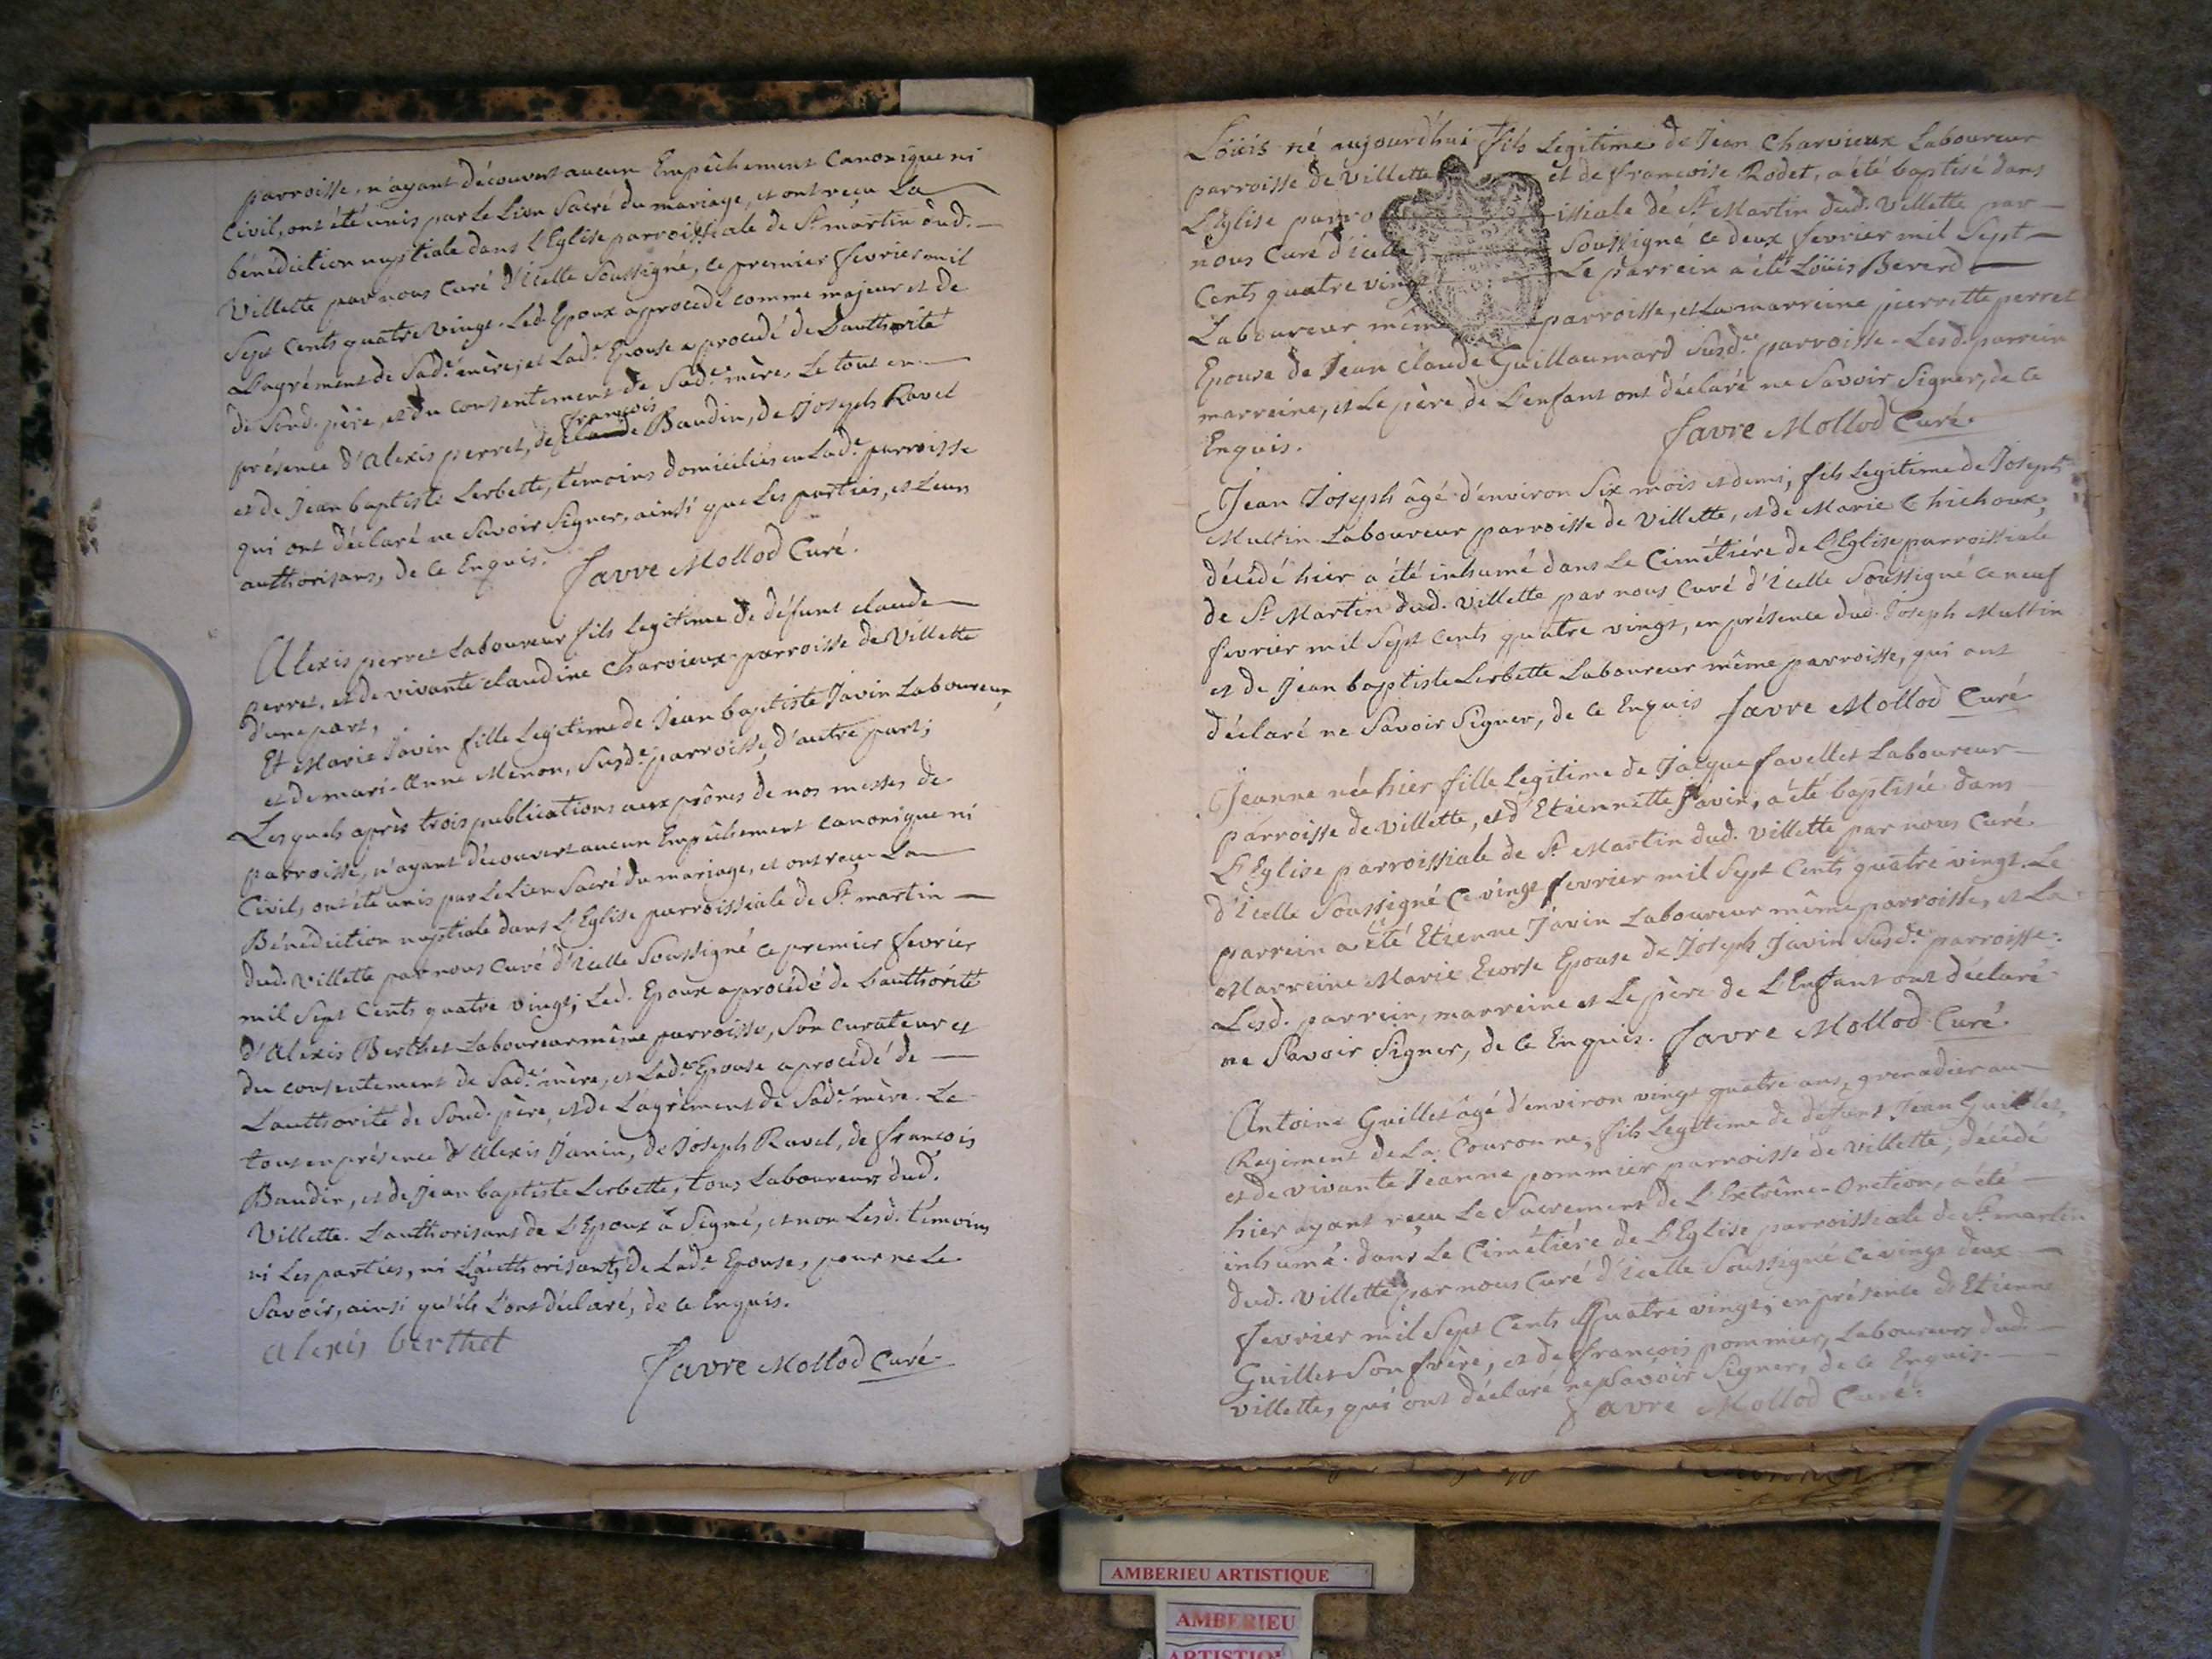 parroisse, n'ayant découvert aucun Empêchement Canonique ni
Civil, ont été unis par Le Lien Sacré du mariage, et ont reçu La
bénédiction nuptiale dans L'Eglise parroissiale de St. martin dud.
Villette par nous Curé d'Icelle Soussigné, ce premier fevrier mil
Sept Cents quatre Vingt. Led. Epoux a procedé comme majeur et de
L'agrément de Sade. mère, et Lade. Epouse a procedé de L'authorité
de Sond. père, et du consentement de Sade. mère. Le tout en
présence d'Alexis perret, de claude françois Baudin, de Joseph Ravet
et de Jean baptiste Lerbette, témoins domiciliés en Lade. parroisse
qui ont déclaré ne Savoir Signer, ainsi que Les parties, et Leurs
authorisans, de ce Enquis. Favre Mollod Curé.
Alexis perret Laboureur fils Legitime de défunt claude
perret, et de vivante claudine Charvieux parroisse de Villette
d'une part,
Et Marie Javin fille Legitime de Jean baptiste Javin Laboureur,
et de mari-Anne Menon, Susde. parroisse, d'autre part;
Lesquels après trois publications aux prônes de nos messes de
parroisse, n'ayant découvert aucun Empêchement canonique ni
Civil, ont été unis par Le Lien Sacré du mariage, et ont reçu La
Bénédiction nuptiale dans L'Eglise parroissiale de St. martin
dud. Villette par nous Curé d'Icelle Soussigné ce premier fevrier
mil Sept Cents quatre vingt; Led. Epoux a procédé de L'authorité
d'Alexis Berthet Laboureur même parroisse, Son Curateur et
du consentement de Sade. mère, et Lade. Epouse a procédé de
L'authorité de Sond. père, et de L'agrément de Sade. mère. Le
tout en présence d'Alexis Janin, de Joseph Ravet, de françois
Baudin, et de Jean baptiste Lerbette, tous Laboureurs dud.
Villette. L'authorisant de L'Epoux a Signé, et non Lesd. témoins
ni Les parties, ni Les authorisants de Lade. Epouse, pour ne Le
Savoir, ainsi qu'ils L'ont déclaré, de ce Enquis.
alexis berthet
Favre Mollod Curé
Loüis né aujourd'hui fils Legitime de Jean Charvieux Laboureur
parroisse de Villette et de françoise Rodet, a été baptisé dans
L'Eglise parroissiale de St. Martin dud. Villette par
nous Curé d'icelle Soussigné ce deux fevrier mil Sept
Cents quatre vingt. Le parrein a été Loüis Bererd
Laboureur même parroisse, et La marreine pierrette perret
Epouse de Jean claude Guillaumard Susde. parroisse. Lesd. parrein
marreine, et Le père de L'enfant ont déclaré ne Savoir Signer, de ce
Enquis. Favre Mollod Curé.
Jean Joseph âgé d'environ Six mois et demi, fils Legitime de Joseph
Multin Laboureur parroisse de Villette, et de Marie Chichoux,
décédé hier a été inhumé dans Le Cimétiére de L'Eglise parroissiale
de St. Martin dud. Villette par nous Curé d'Icelle Soussigné ce neuf
fevrier mil Sept Cents quatre vingt, en présence dud. Joseph Multin
et de Jean baptiste Lerbette Laboureur même parroisse, qui ont
déclaré ne Savoir Signer, de ce Enquis Favre Mollod Curé
Jeanne née hier fille Legitime de Jacque favellet Laboureur
parroisse de Villette, et d'Etiennette Javin, a été baptisée dans
L'Eglise parroissiale de St. Martin dud. Villette par nous Curé
d'Icelle Soussigné ce vingt fevrier mil Sept Cents quatre vingt. Le
parrein a été Etienne Javin Laboureur même parroisse, et La
Marreine Marie Ecorse Epouse de Joseph Javin Susde. parroisse.
Lesd. parrein, marreine et Le père de L'Enfant ont déclaré
ne Savoir Signer, de ce Enquis. Favre Mollod Curé.
Antoine Guillet âgé d'environ vingt quatre ans, grenadier au
Regiment de La Couronne, fils Legitime de défunt Jean Guillet,
et de vivante Jeanne pommier parroisse de Villette, décédé
hier ayant reçu Le Sacrement de L'Extrême-Onction, a été
inhumé dans Le Cimétiére de L'Eglise parroissiale de St. martin
dud. Villette par nous Curé d'Icelle Soussigné ce vingt deux
fevrier mil Sept Cents Quatre vingt, en présence d'Etienne
Guillet Son frère, et de françois pommier, Laboureurs dud.
Villette, qui ont déclaré ne Savoir Signer, de ce Enquis.
Favre Mollod Curé.
AMBERIEU ARTISTIQUE
AMBERIEU
ARTISTIQUE